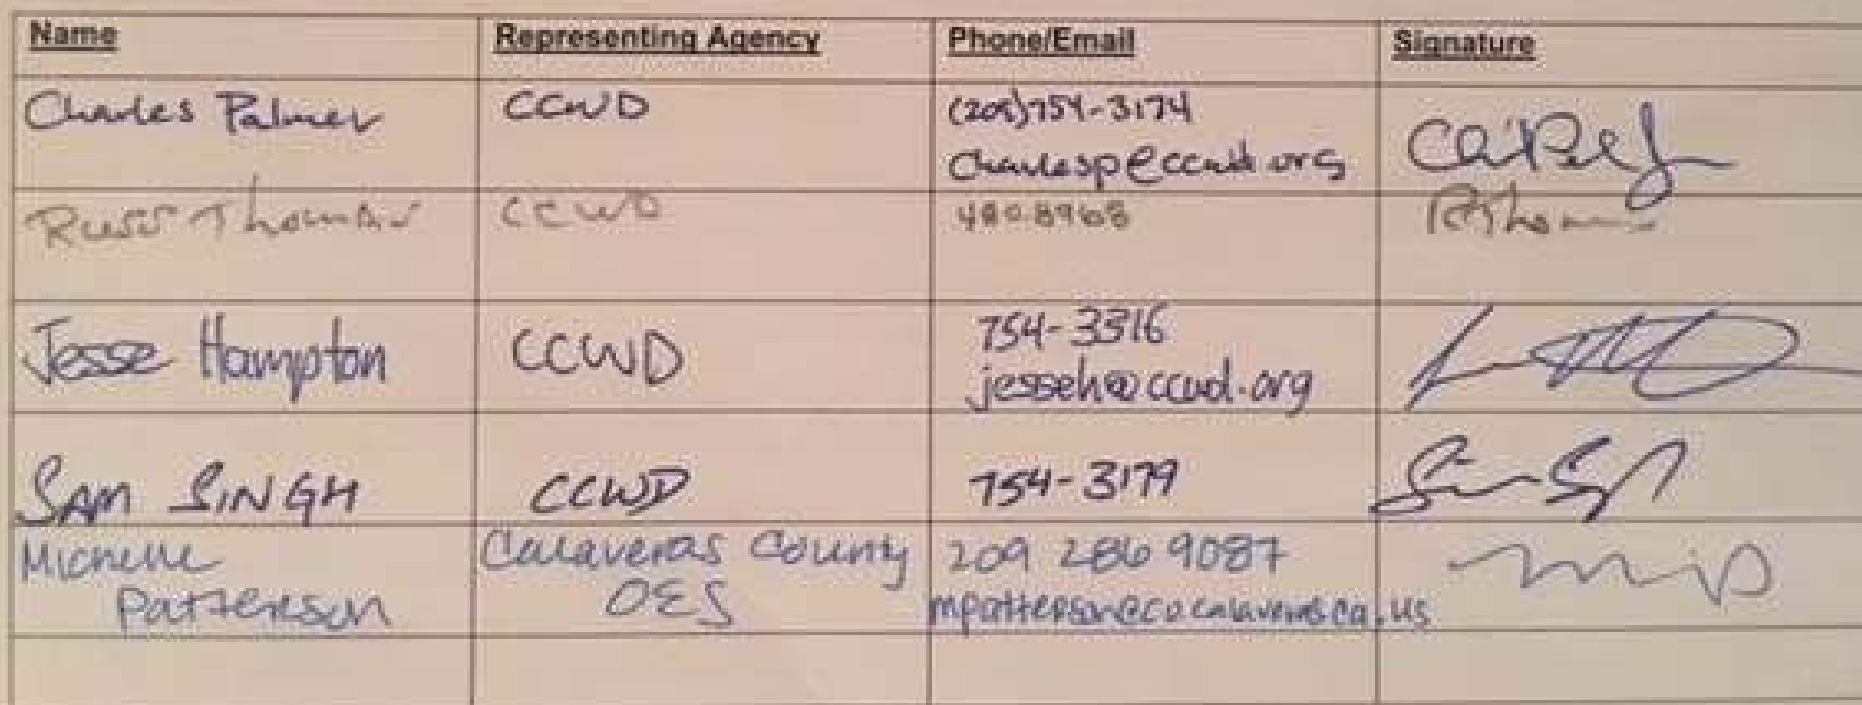 Name Representing Agency Phone/Email Signature
Charles Palmer CCWD (209)754-3174
charlesp@ccwd.org
Russ Thomas CCWD 480.8968 RThomas
Jesse Hampton CCWD 754-3316
jesseh@ccwd.org
SAM SINGH CCWD 754-3179
Michelle Calaveras County 209 286 9087
Patterson OES mpatterson@co.calaveras.ca.us